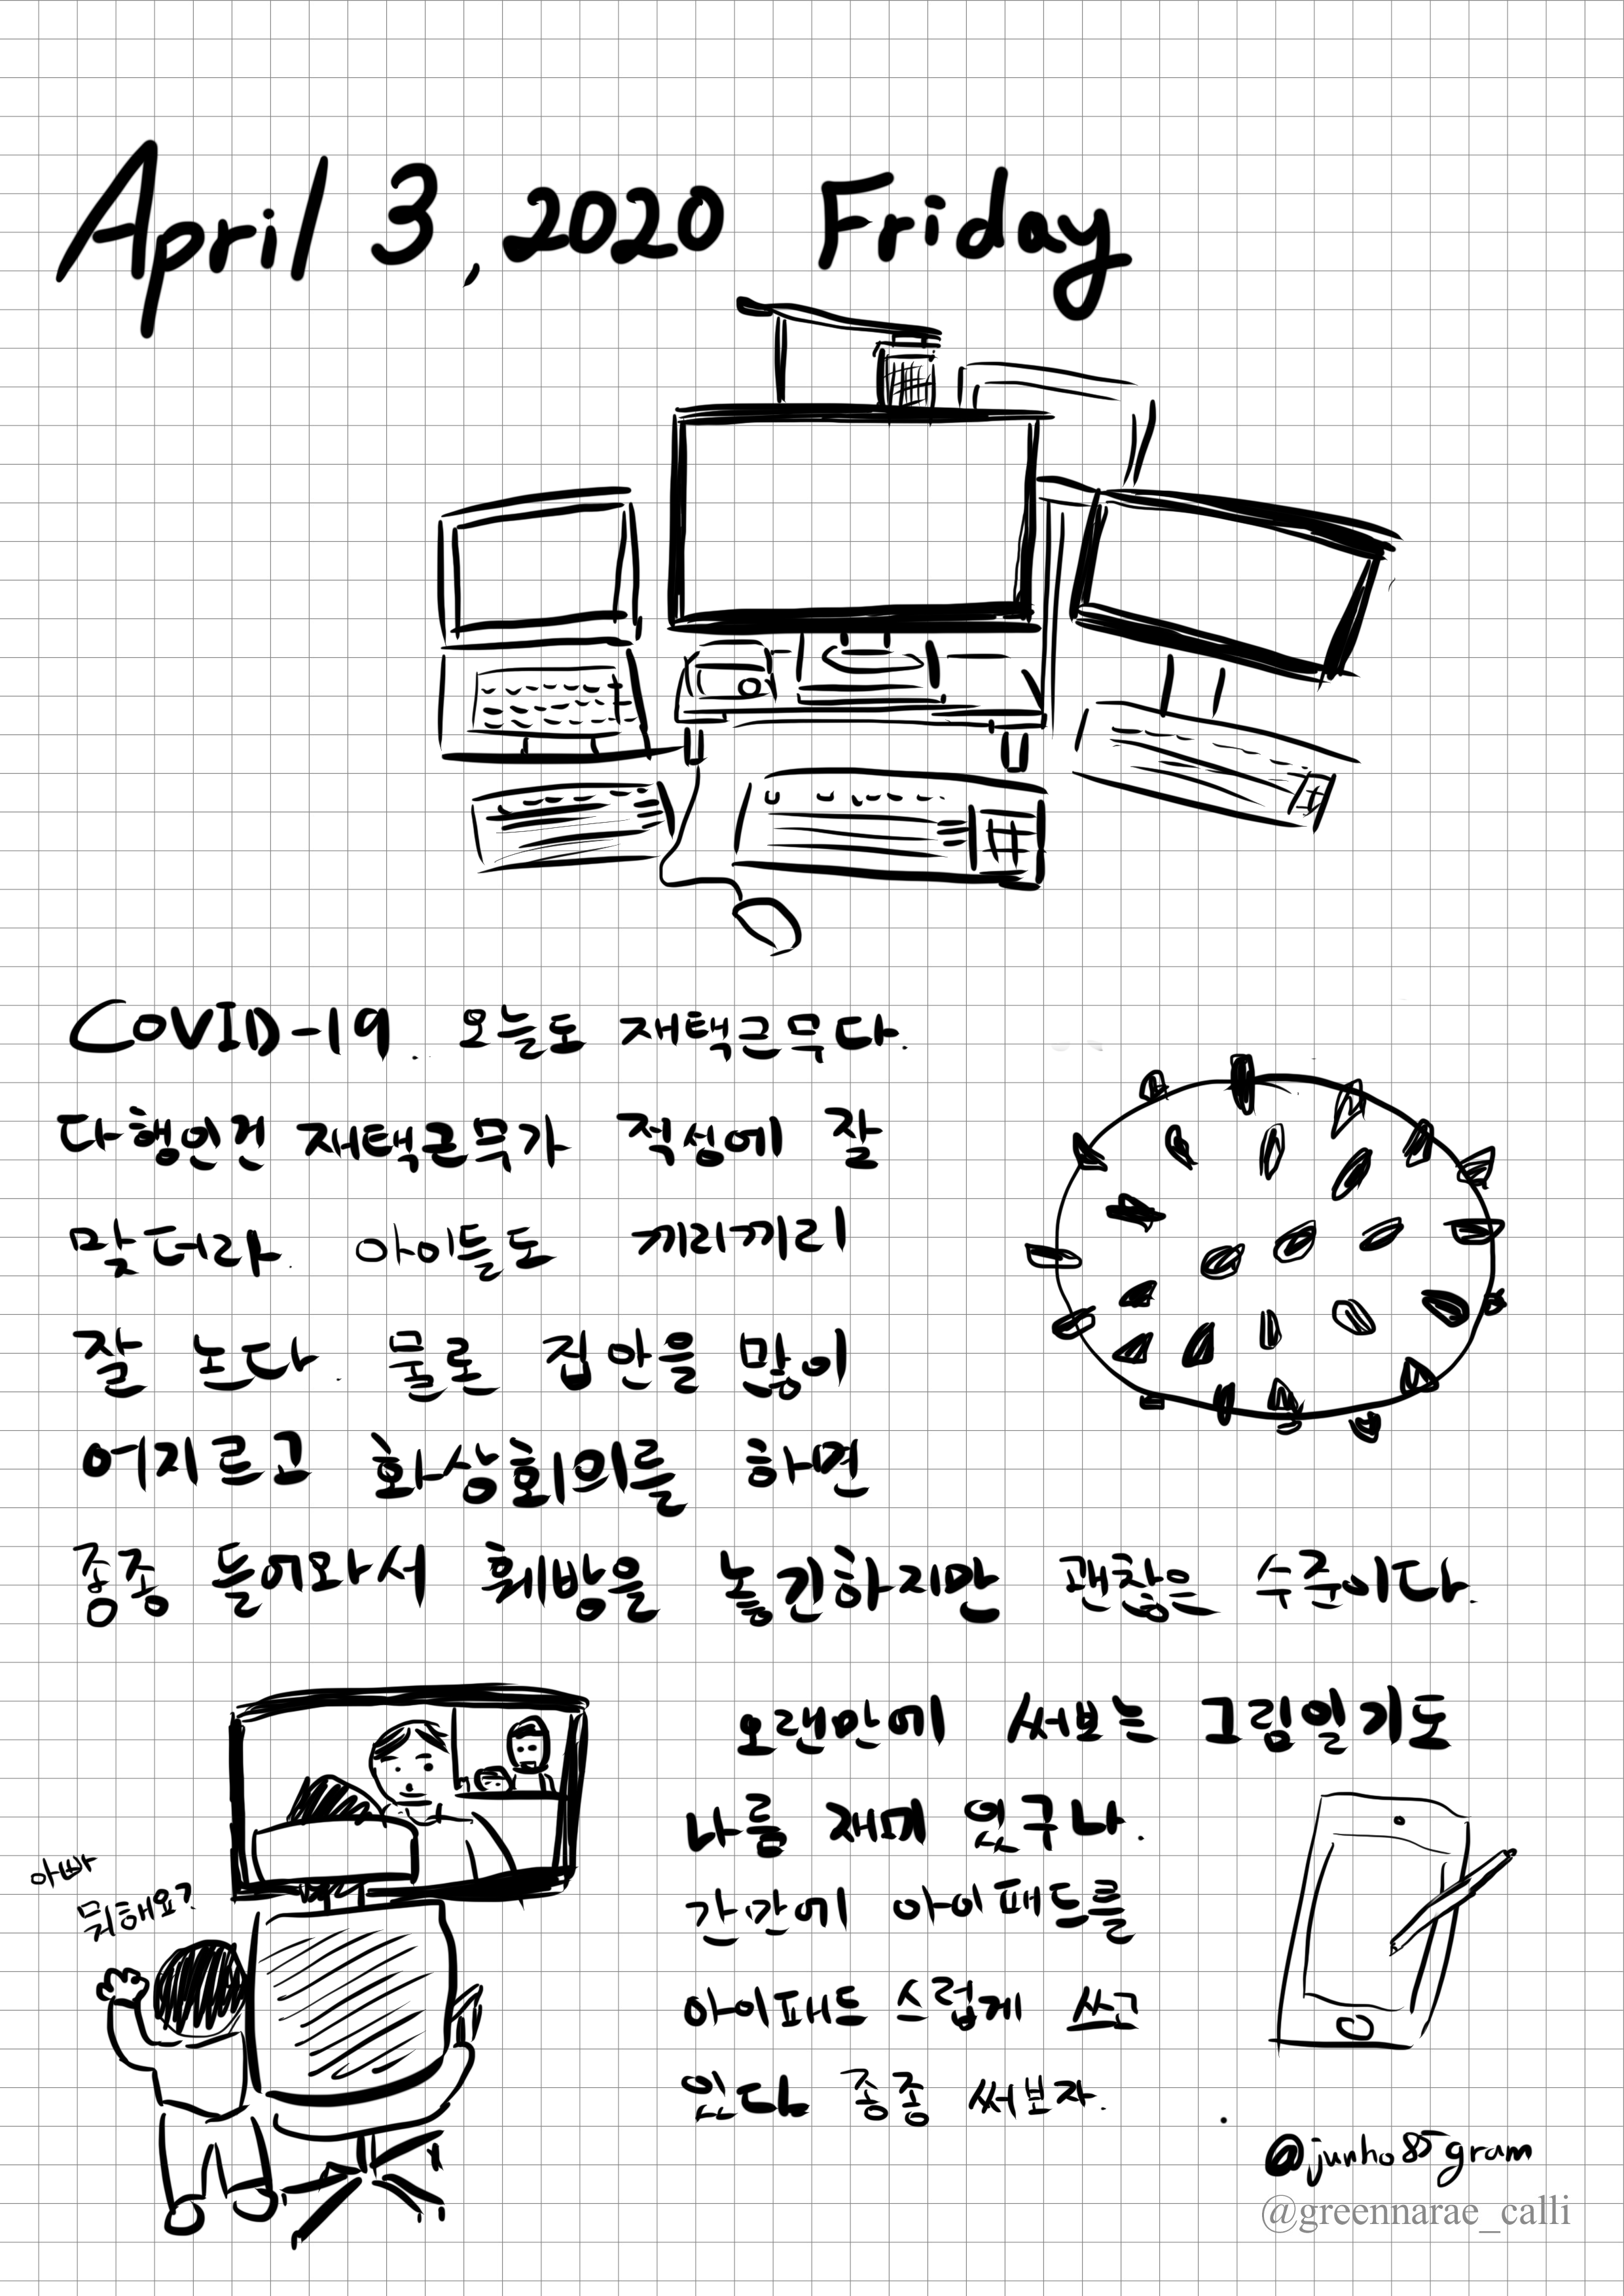 April 3, 2020 Friday
COVID-19. 오늘도 재택근무다.
다행인건 재택근무가 적성에 잘
맞더라. 아이들도 끼리끼리
잘 논다. 물론 집안을 많이
어지르고 화상회의를 하면
종종 들어와서 훼방을 놓긴하지만 괜찮은 수준이다.
오랜만에 써보는 그림일기도
나름 재미 있구나.
간만에 아이패드를
아이패드 스럽게 쓰고
있다 종종 써보자.
아빠
뭐해요?
@junho85gram
@greennarae_calli